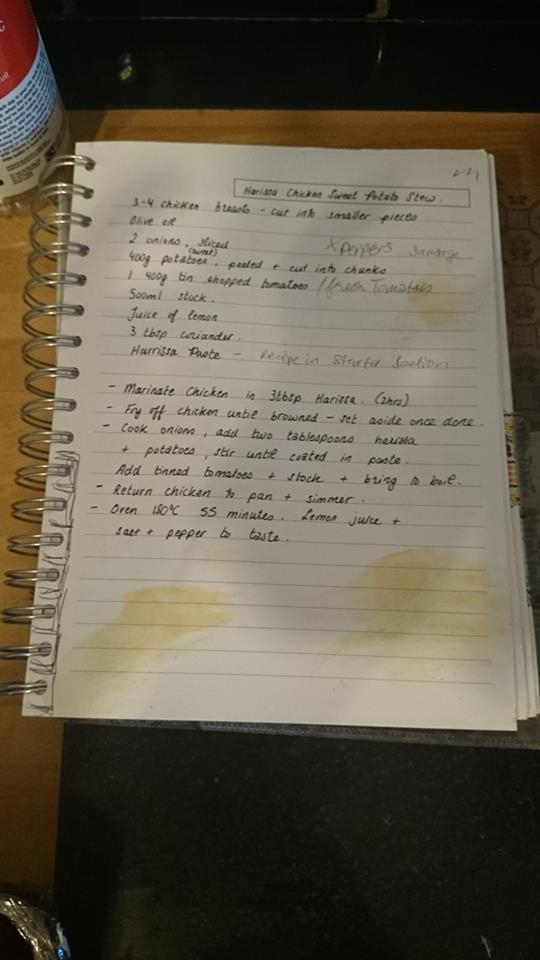 Harissa Chicken Sweet Potato Stew.
3-4 chicken breasts - cut into smaller pieces
Olive oil
2 onions, sliced
x peppers sausage
(sweet)
400g potatoes, peeled + cut into chunks
1 400g tin chopped tomatoes / fresh Tomatoes
500ml stock.
Juice of lemon
3 tbsp coriander.
Harrissa Paste - Recipe in Starter Section
- Marinate Chicken in 3tbsp Harissa. (2hrs)
- Fry off chicken until browned - set aside once done.
- Cook onions, add two tablespoons harissa
+ potatoes, stir until coated in paste.
Add tinned tomatoes + stock + bring to boil.
- Return chicken to pan + simmer.
- Oven 180°C 55 minutes. Lemon juice +
salt + pepper to taste.